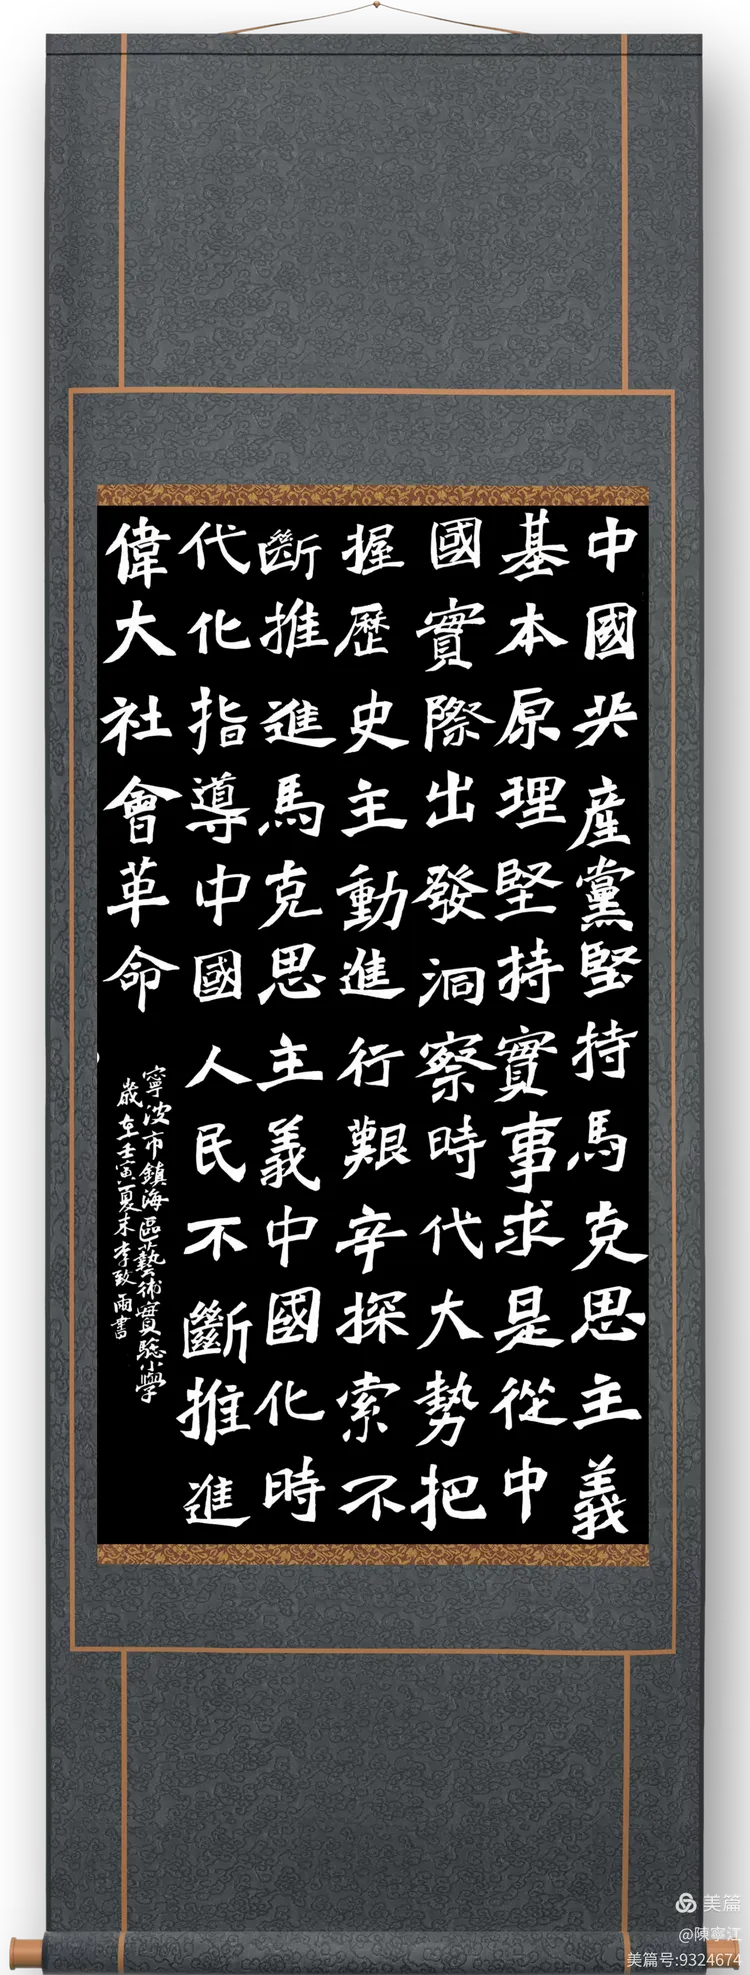 中國共產黨堅持馬克思主義
基本原理堅持實事求是從中
國實際出發洞察時代大勢把
握歷史主動進行艱辛探索不
斷推進馬克思主義中國化時
代化指導中國人民不斷推進
偉大社會革命
寧波市鎮海區藝術實驗小學
歲在壬寅夏末李致雨書
美篇
@陳寧江
美篇号:9324674